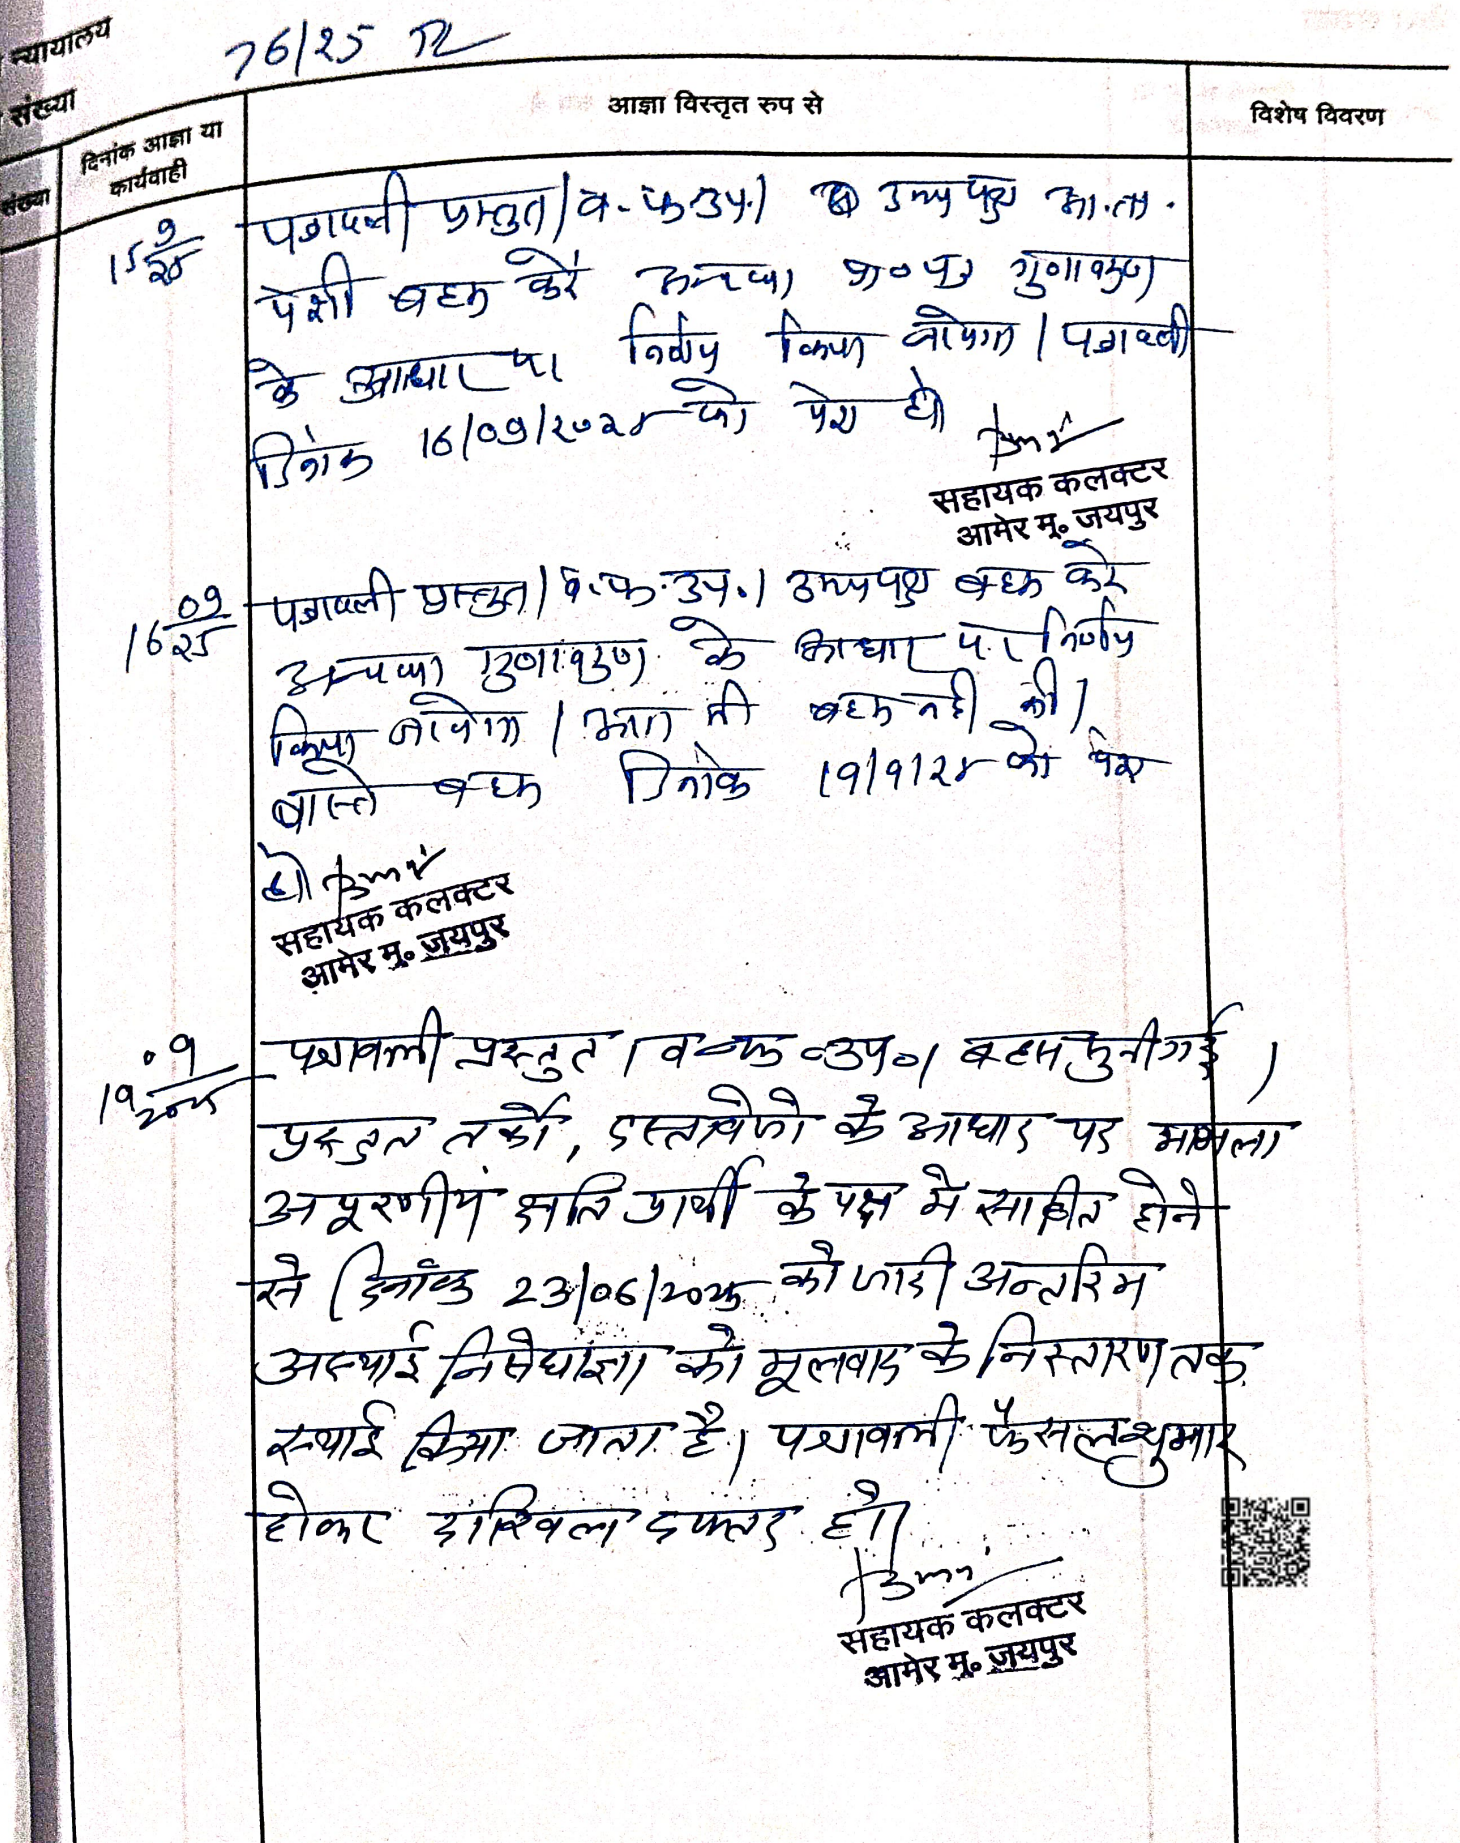 न्यायालय
76/25
संख्या
आज्ञा विस्तृत रुप से
विशेष विवरण
संख्या
दिनांक आज्ञा या
कार्यवाही
15 9/25
पत्रावली प्रस्तुत। व. फ. उप.। उभयपक्ष आ. ता.
पेशी बहस करें अन्यथा गुणावगुण
के आधार पर निर्णय किया जायेगा। पत्रावली
दिनांक 16/09/2025 को पेश हो
सहायक कलक्टर
आमेर मु॰ जयपुर
16 09/25
पत्रावली प्रस्तुत। व. फ. उप.। उभयपक्ष बहस करें
अन्यथा गुणावगुण के आधार पर निर्णय
किया जायेगा। बहस नही की।
वास्ते बहस दिनांक 19/9/25 को पेश
हो
सहायक कलक्टर
आमेर मु॰ जयपुर
19 09/2025
पत्रावली प्रस्तुत। व॰फ॰उप॰। बहस सुनी गई।
प्रस्तुत तर्को, दस्तावेजो के आधार पर मामला
अपूरणीय क्षति प्रार्थी के पक्ष मे साबित होने
से दिनांक 23/06/2025 को जारी अन्तरिम
अस्थाई निषेधाज्ञा को मूलवाद के निस्तारण तक
स्थाई किया जाता है। पत्रावली फैसल शुमार
होकर दाखिल दफ्तर हो।
सहायक कलक्टर
आमेर मु॰ जयपुर